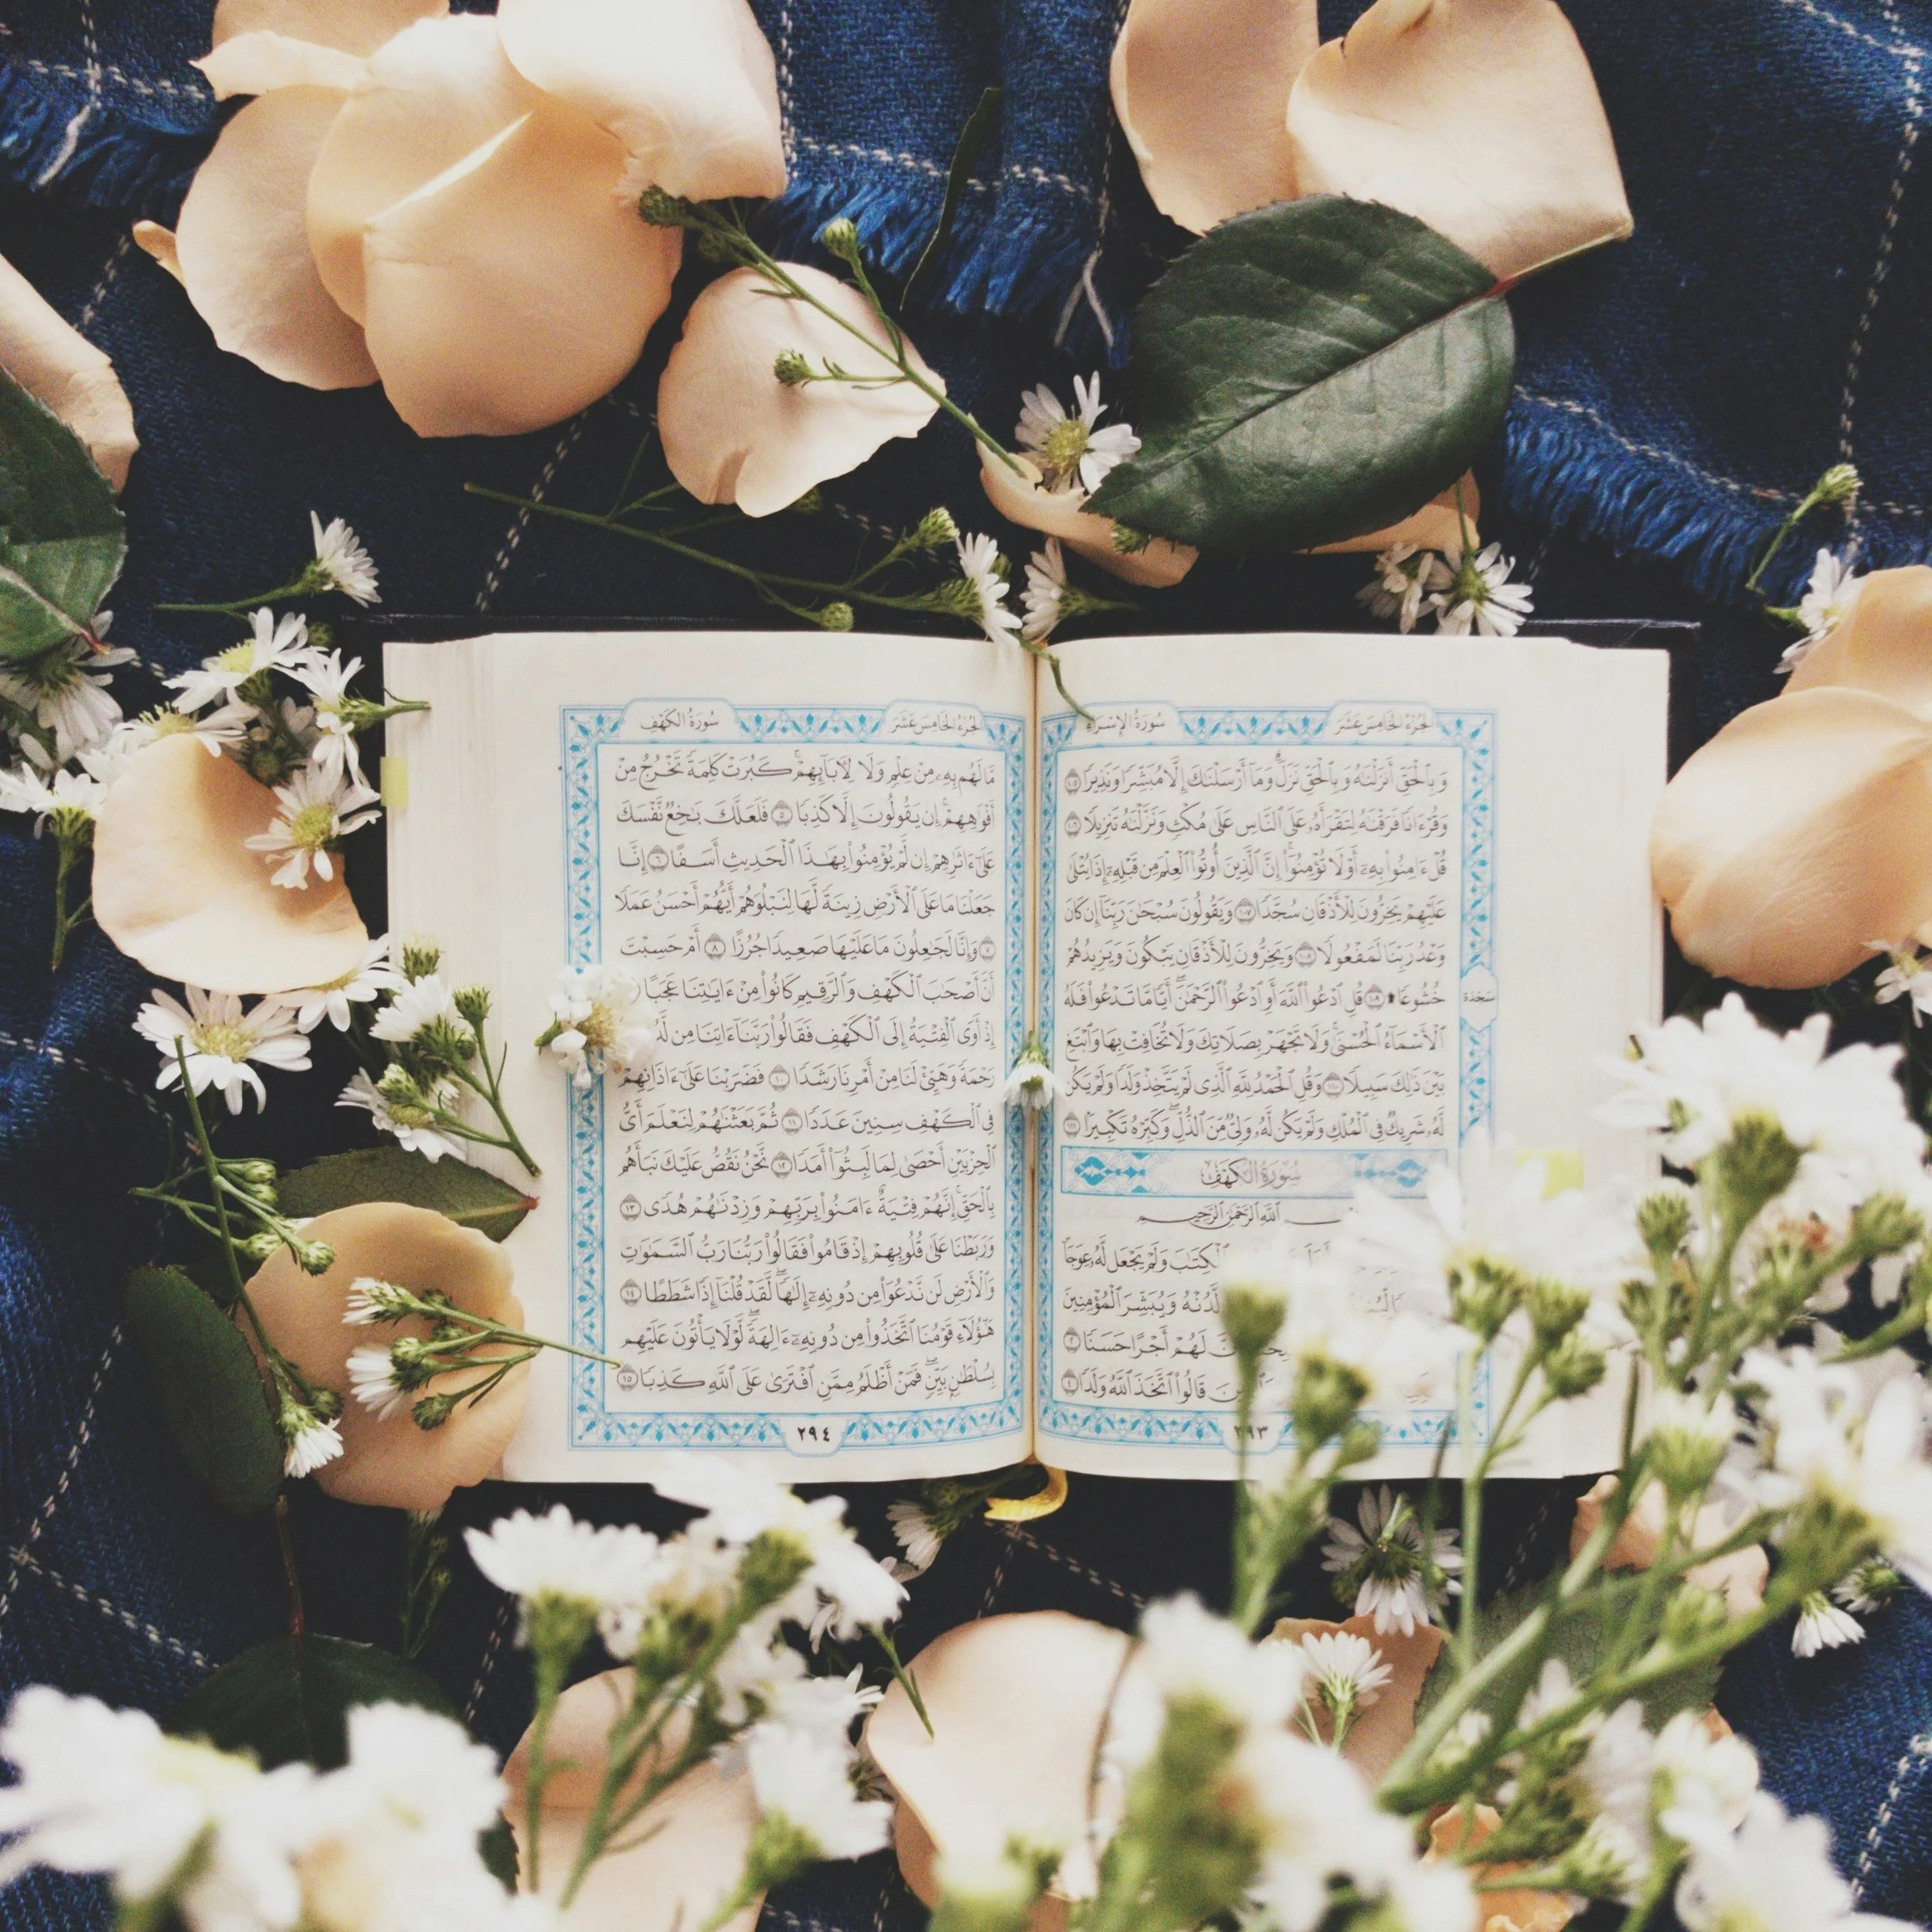 الجزء الخامس عشر
سورة الإسراء
وَبِٱلْحَقِّ أَنزَلْنَٰهُ وَبِٱلْحَقِّ نَزَلَ ۗ وَمَآ أَرْسَلْنَٰكَ إِلَّا مُبَشِّرًا وَنَذِيرًا ١٠٥
وَقُرْءَانًا فَرَقْنَٰهُ لِتَقْرَأَهُۥ عَلَى ٱلنَّاسِ عَلَىٰ مُكْثٍ وَنَزَّلْنَٰهُ تَنزِيلًا ١٠٦
قُلْ ءَامِنُوا۟ بِهِۦٓ أَوْ لَا تُؤْمِنُوٓا۟ ۚ إِنَّ ٱلَّذِينَ أُوتُوا۟ ٱلْعِلْمَ مِن قَبْلِهِۦٓ إِذَا يُتْلَىٰ
عَلَيْهِمْ يَخِرُّونَ لِلْأَذْقَانِ سُجَّدًا ١٠٧ وَيَقُولُونَ سُبْحَٰنَ رَبِّنَآ إِن كَانَ
وَعْدُ رَبِّنَا لَمَفْعُولًا ١٠٨ وَيَخِرُّونَ لِلْأَذْقَانِ يَبْكُونَ وَيَزِيدُهُمْ
خُشُوعًا ۩ ١٠٩ قُلِ ٱدْعُوا۟ ٱللَّهَ أَوِ ٱدْعُوا۟ ٱلرَّحْمَٰنَ ۖ أَيًّا مَّا تَدْعُوا۟ فَلَهُ
سجدة
ٱلْأَسْمَآءُ ٱلْحُسْنَىٰ ۚ وَلَا تَجْهَرْ بِصَلَاتِكَ وَلَا تُخَافِتْ بِهَا وَٱبْتَغِ
بَيْنَ ذَٰلِكَ سَبِيلًا ١١٠ وَقُلِ ٱلْحَمْدُ لِلَّهِ ٱلَّذِى لَمْ يَتَّخِذْ وَلَدًا وَلَمْ يَكُن
لَّهُۥ شَرِيكٌ فِى ٱلْمُلْكِ وَلَمْ يَكُن لَّهُۥ وَلِىٌّ مِّنَ ٱلذُّلِّ ۖ وَكَبِّرْهُ تَكْبِيرًۢا ١١١
سورة الكهف
ٱللَّهِ ٱلرَّحْمَٰنِ ٱلرَّحِيمِ
ٱلْكِتَٰبَ وَلَمْ يَجْعَل لَّهُۥ عِوَجَا
لَّدُنْهُ وَيُبَشِّرَ ٱلْمُؤْمِنِينَ
لَهُمْ أَجْرًا حَسَنًا ٢
قَالُوا۟ ٱتَّخَذَ ٱللَّهُ وَلَدًا ٤
٢٩٣
الجزء الخامس عشر
سورة الكهف
مَّا لَهُم بِهِۦ مِنْ عِلْمٍ وَلَا لِءَابَآئِهِمْ ۚ كَبُرَتْ كَلِمَةً تَخْرُجُ مِنْ
أَفْوَٰهِهِمْ ۚ إِن يَقُولُونَ إِلَّا كَذِبًا ٥ فَلَعَلَّكَ بَٰخِعٌ نَّفْسَكَ
عَلَىٰٓ ءَاثَٰرِهِمْ إِن لَّمْ يُؤْمِنُوا۟ بِهَٰذَا ٱلْحَدِيثِ أَسَفًا ٦ إِنَّا
جَعَلْنَا مَا عَلَى ٱلْأَرْضِ زِينَةً لَّهَا لِنَبْلُوَهُمْ أَيُّهُمْ أَحْسَنُ عَمَلًا
٧ وَإِنَّا لَجَٰعِلُونَ مَا عَلَيْهَا صَعِيدًا جُرُزًا ٨ أَمْ حَسِبْتَ
أَنَّ أَصْحَٰبَ ٱلْكَهْفِ وَٱلرَّقِيمِ كَانُوا۟ مِنْ ءَايَٰتِنَا عَجَبًا
إِذْ أَوَى ٱلْفِتْيَةُ إِلَى ٱلْكَهْفِ فَقَالُوا۟ رَبَّنَآ ءَاتِنَا مِن
رَحْمَةً وَهَيِّئْ لَنَا مِنْ أَمْرِنَا رَشَدًا ١٠ فَضَرَبْنَا عَلَىٰٓ ءَاذَانِهِمْ
فِى ٱلْكَهْفِ سِنِينَ عَدَدًا ١١ ثُمَّ بَعَثْنَٰهُمْ لِنَعْلَمَ أَىُّ
ٱلْحِزْبَيْنِ أَحْصَىٰ لِمَا لَبِثُوٓا۟ أَمَدًا ١٢ نَّحْنُ نَقُصُّ عَلَيْكَ نَبَأَهُم
بِٱلْحَقِّ ۚ إِنَّهُمْ فِتْيَةٌ ءَامَنُوا۟ بِرَبِّهِمْ وَزِدْنَٰهُمْ هُدًى ١٣
وَرَبَطْنَا عَلَىٰ قُلُوبِهِمْ إِذْ قَامُوا۟ فَقَالُوا۟ رَبُّنَا رَبُّ ٱلسَّمَٰوَٰتِ
وَٱلْأَرْضِ لَن نَّدْعُوَا۟ مِن دُونِهِۦٓ إِلَٰهًا ۖ لَّقَدْ قُلْنَآ إِذًا شَطَطًا ١٤
هَٰٓؤُلَآءِ قَوْمُنَا ٱتَّخَذُوا۟ مِن دُونِهِۦٓ ءَالِهَةً ۖ لَّوْلَا يَأْتُونَ عَلَيْهِم
بِسُلْطَٰنٍۭ بَيِّنٍ ۖ فَمَنْ أَظْلَمُ مِمَّنِ ٱفْتَرَىٰ عَلَى ٱللَّهِ كَذِبًا ١٥
٢٩٤